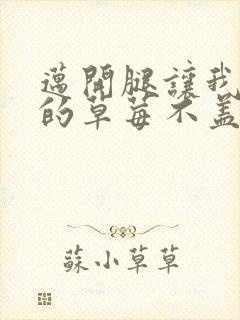 邁開腿讓我
的草莓不蓋
蘇小草草